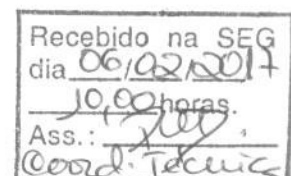 Recebido na SEG
dia 06/02/2017
10,00 horas.
Ass.:
Coord. Técnica